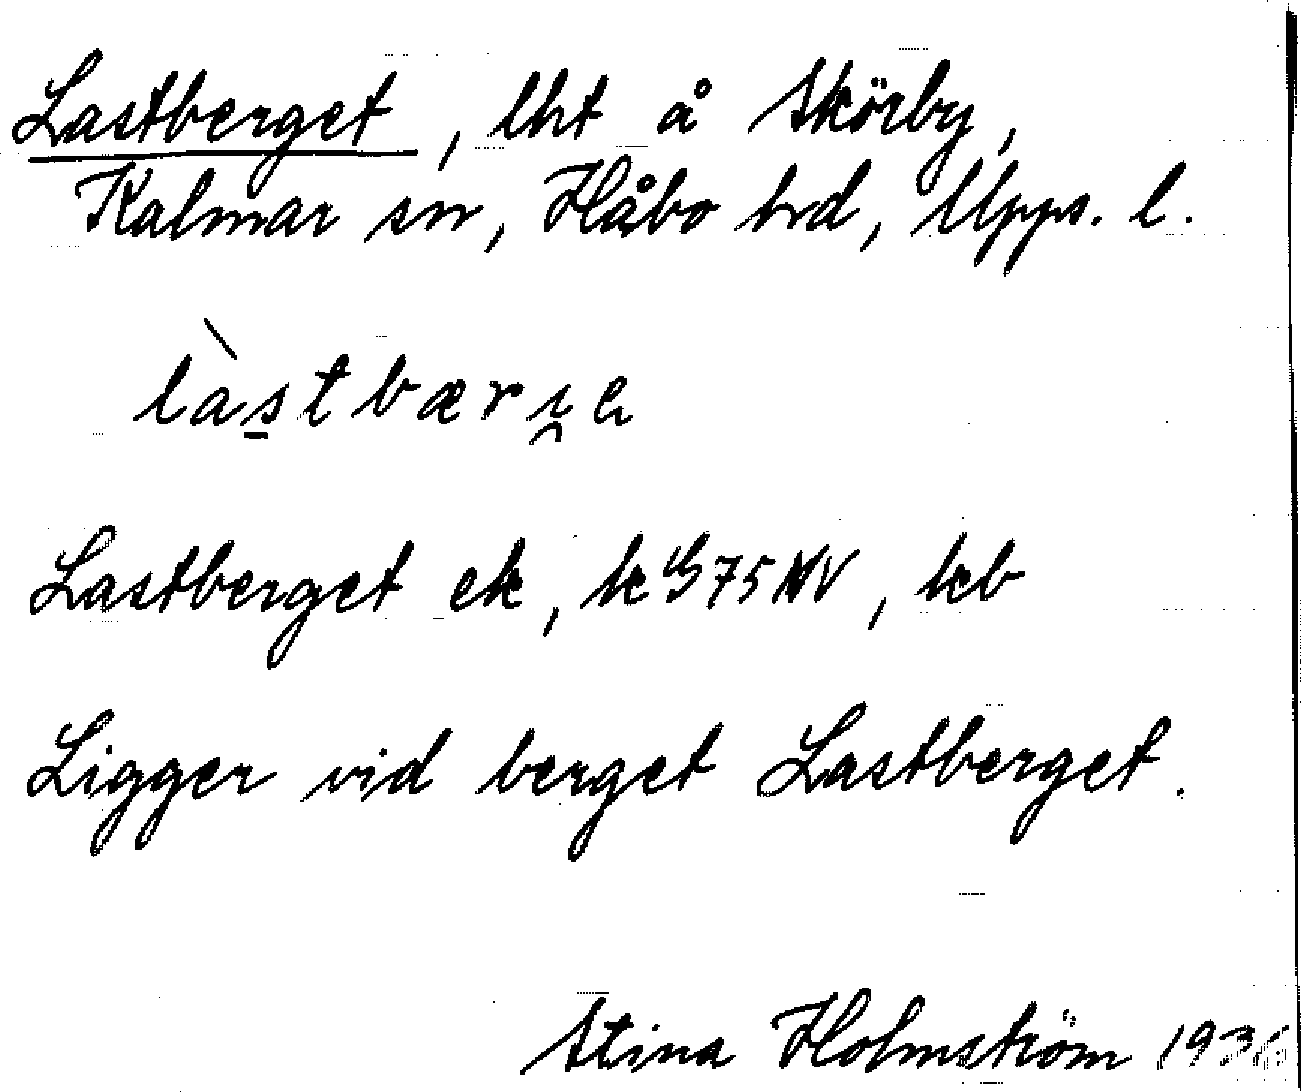 Lastberget, lht å Skörby,
Kalmar sn, Håbo hrd, Upps. l.
làstbærı̯e
Lastberget ek, k G 75 NV, kb
Ligger vid berget Lastberget.
Stina Holmström